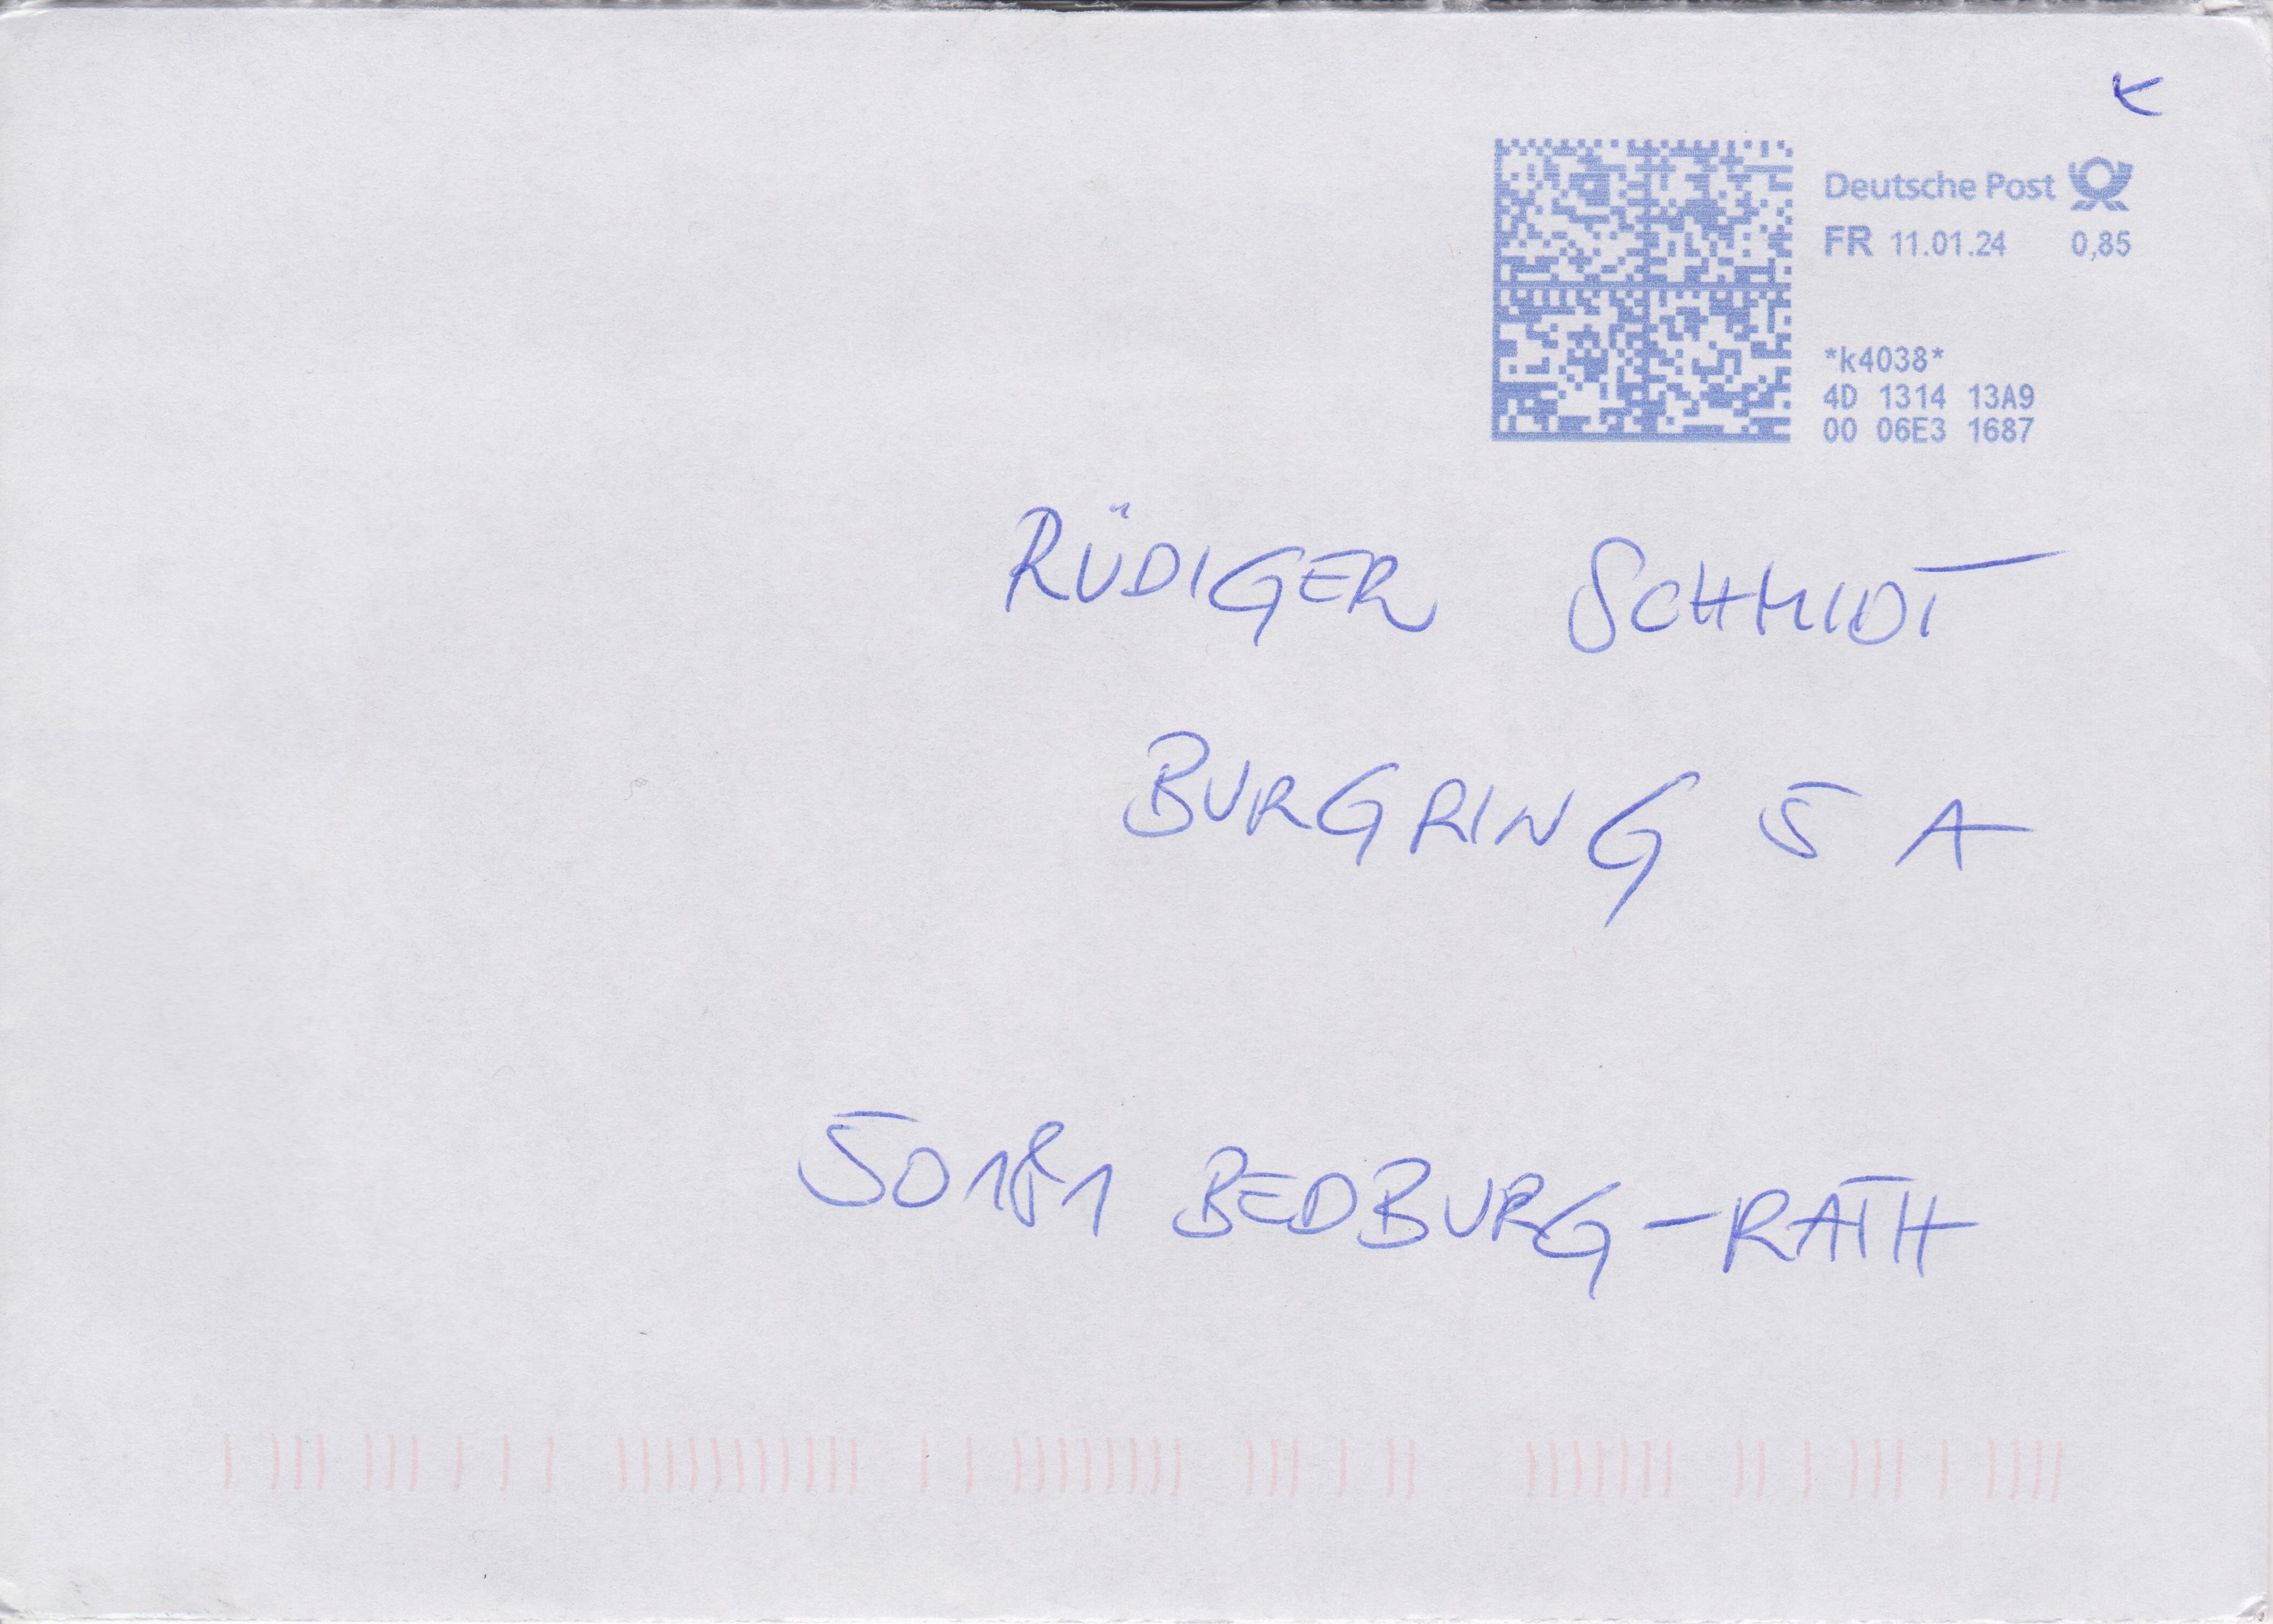 Deutsche Post
FR 11.01.24 0,85
*k4038*
4D 1314 13A9
00 06E3 1687
RÜDIGER SCHMIDT
BURGRING 5 A
50181 BEDBURG-RATH